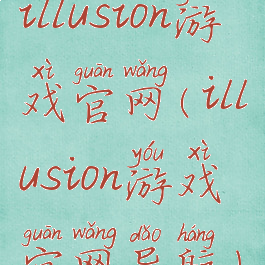 illusion游
xì guān wǎng
戏官网(ill
yóu xì
usion游戏
guān wǎng dǎo háng
官网导航)